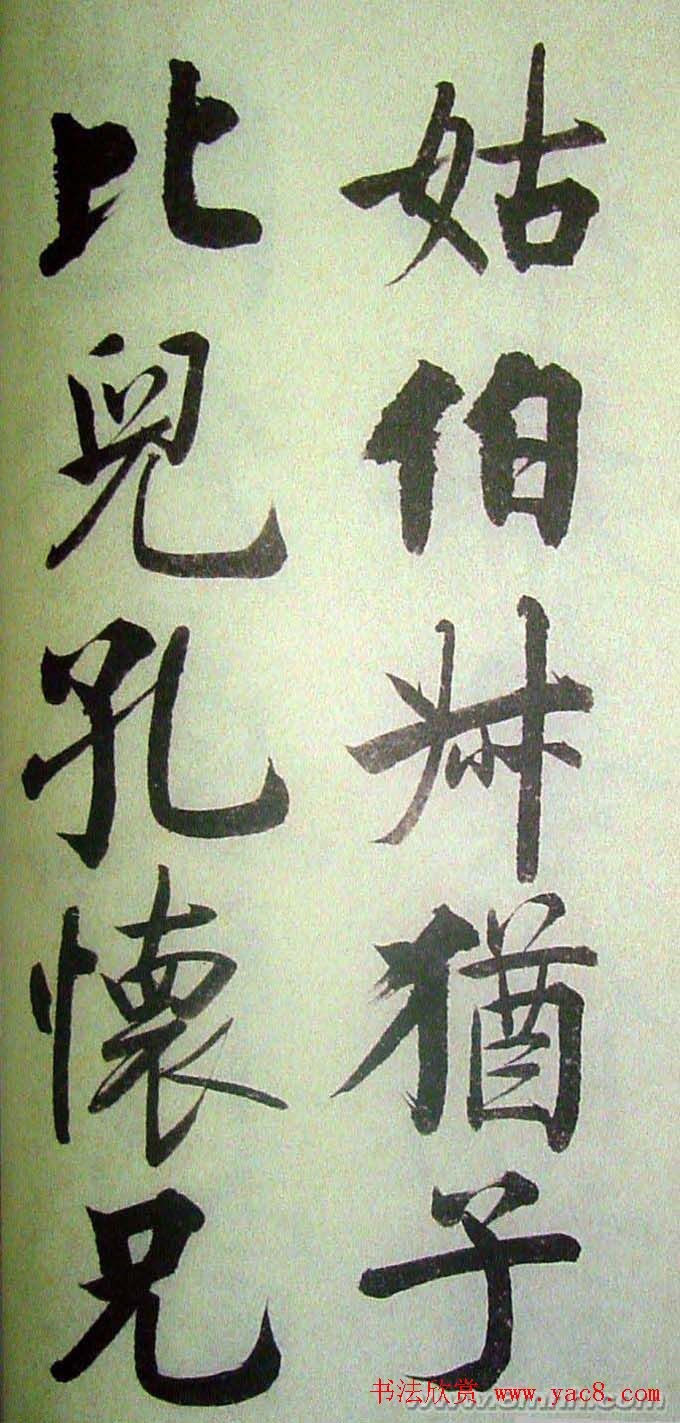 姑伯叔猶子
比兒孔懷兄
书法欣赏 www.yac8.com